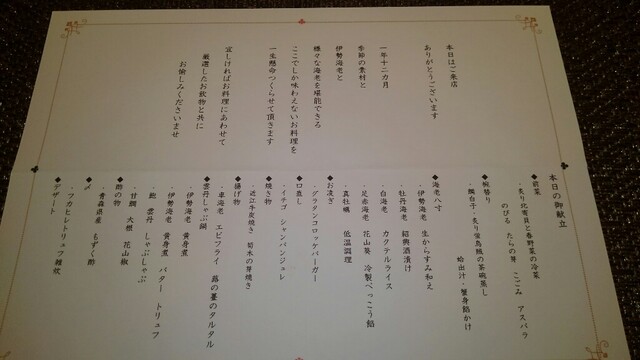 本日はご来店
ありがとうございます
一年十二カ月
季節の素材と
伊勢海老と
様々な海老を堪能できる
ここでしか味わえないお料理を
一生懸命つくらせて頂きます
宜しければお料理にあわせて
厳選したお飲物と共に
お愉しみくださいませ
本日の御献立
◆前菜
・炙り北寄貝と春野菜の冷菜
のびる たらの芽 こごみ アスパラ
◆椀替り
・鱈白子・炙り雲鳥熊の茶碗蒸し
蛤出汁・蟹身餡かけ
◆海老八寸
・伊勢海老 生からすみ和え
・牡丹海老 紹興酒漬け
・白海老 カクテルライス
・足赤海老 花山葵 冷製べっこう餡
・真牡蠣 低温調理
◆お凌ぎ
・グラタンコロッケバーガー
◆口直し
・イチゴ シャンパンジュレ
◆焼き物
・近江牛炭焼き 筍木の芽焼き
◆揚げ物
・車海老 エビフライ 蕗の薹のタルタル
◆雲丹しゃぶ鍋
・伊勢海老 黄身煮
・伊勢海老 黄身煮 バター トリュフ
・鮑 雲丹 しゃぶしゃぶ
・甘鯛 大根 花山椒
◆酢の物
・青森県産 もずく酢
◆〆
・フカヒレトリュフ雑炊
◆デザート